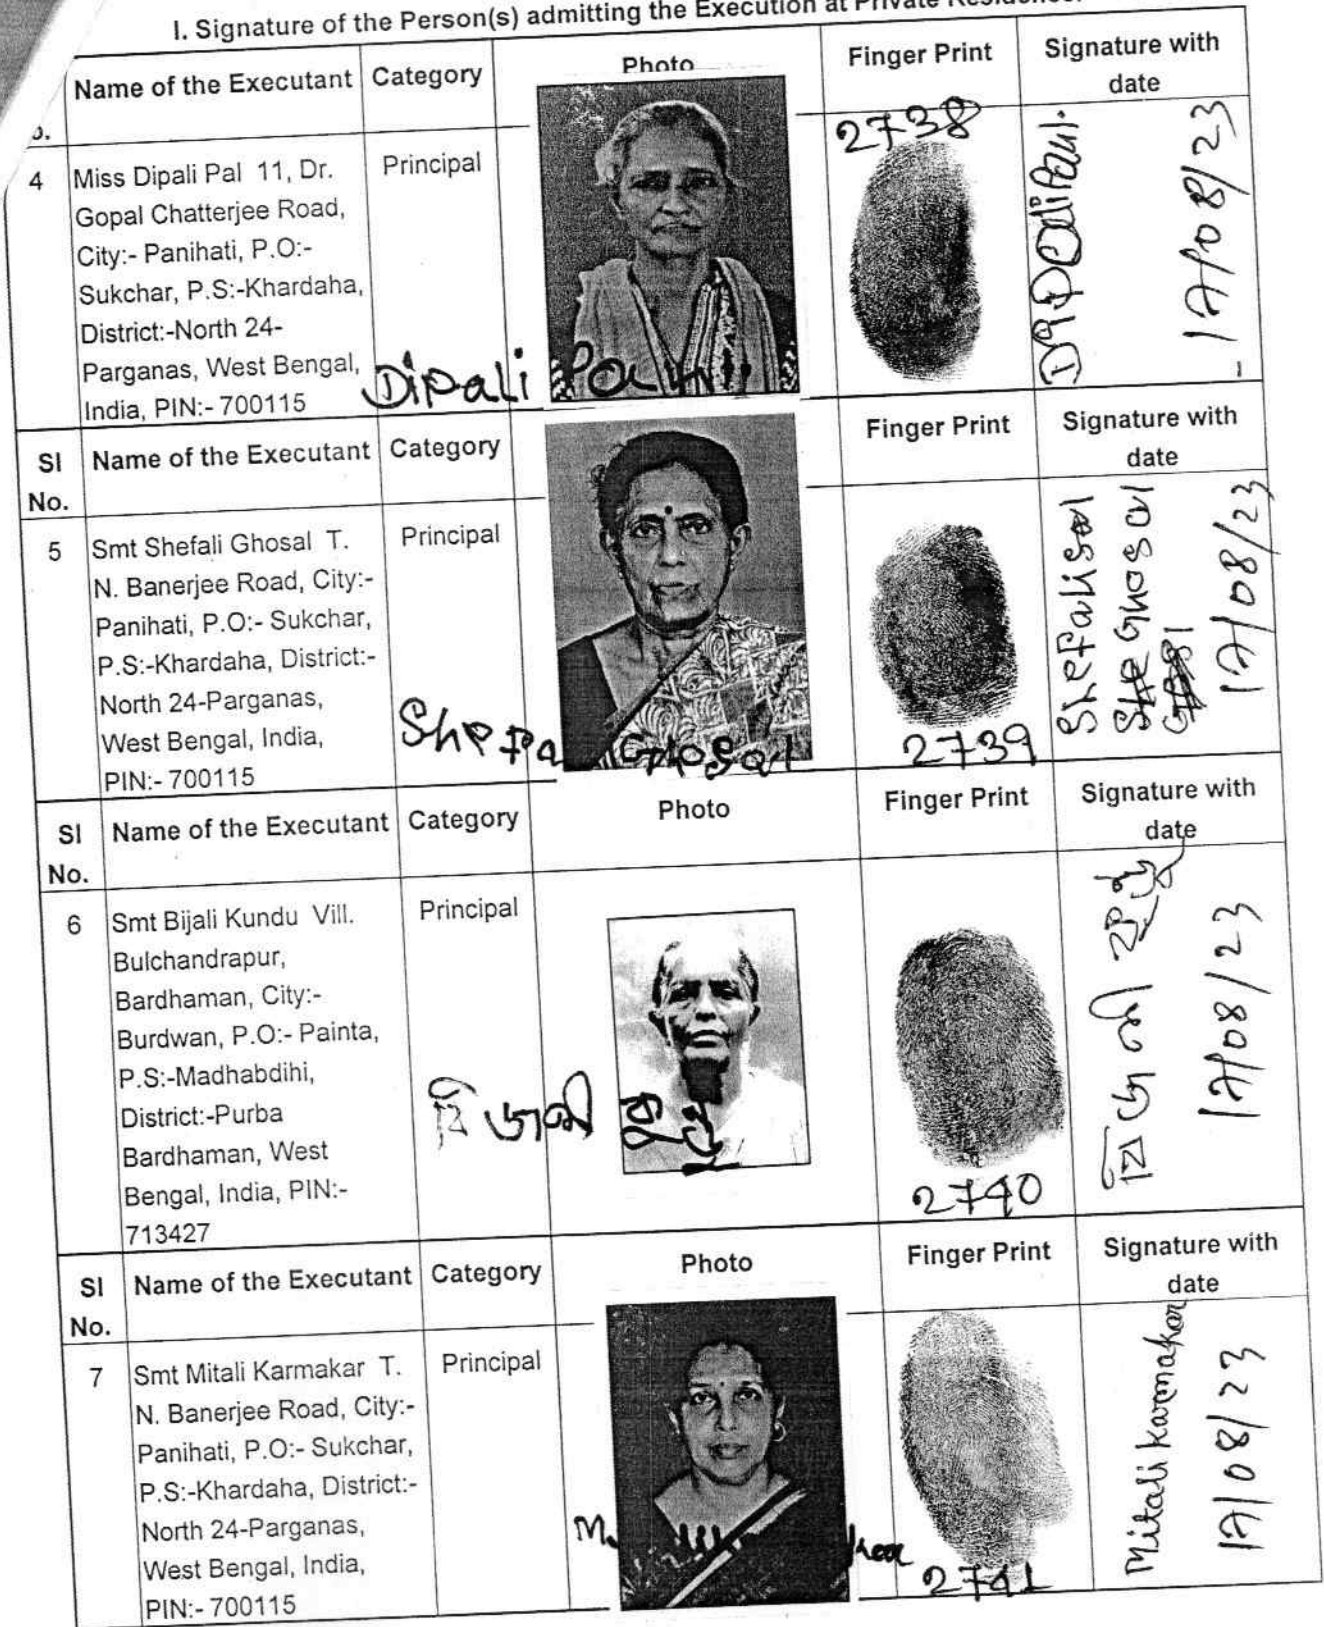 I. Signature of the Person(s) admitting the Execution at Private Residence.
Name of the Executant Category Photo Finger Print Signature with
date
4 Miss Dipali Pal 11, Dr.
Gopal Chatterjee Road,
City:- Panihati, P.O:-
Sukchar, P.S:-Khardaha,
District:-North 24-
Parganas, West Bengal,
India, PIN:- 700115
Principal
Dipali
2738
17/08/23
Sl
No.
Name of the Executant Category Finger Print Signature with
date
5 Smt Shefali Ghosal T.
N. Banerjee Road, City:-
Panihati, P.O:- Sukchar,
P.S:-Khardaha, District:-
North 24-Parganas,
West Bengal, India,
PIN:- 700115
Principal
Ghosal
2739
Ghosal
17/08/23
Sl
No.
Name of the Executant Category Photo Finger Print Signature with
date
6 Smt Bijali Kundu Vill.
Bulchandrapur,
Bardhaman, City:-
Burdwan, P.O:- Painta,
P.S:-Madhabdihi,
District:-Purba
Bardhaman, West
Bengal, India, PIN:-
713427
Principal
বিজলী
2740
বিজলী কুন্ডু
17/08/23
Sl
No.
Name of the Executant Category Photo Finger Print Signature with
date
7 Smt Mitali Karmakar T.
N. Banerjee Road, City:-
Panihati, P.O:- Sukchar,
P.S:-Khardaha, District:-
North 24-Parganas,
West Bengal, India,
PIN:- 700115
Principal
2741
Mitali Karmakar
17/08/23